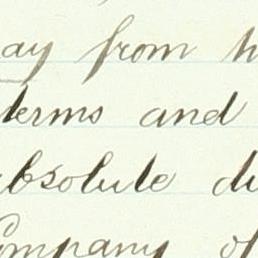 ay from h
terms and
absolute di
Company of